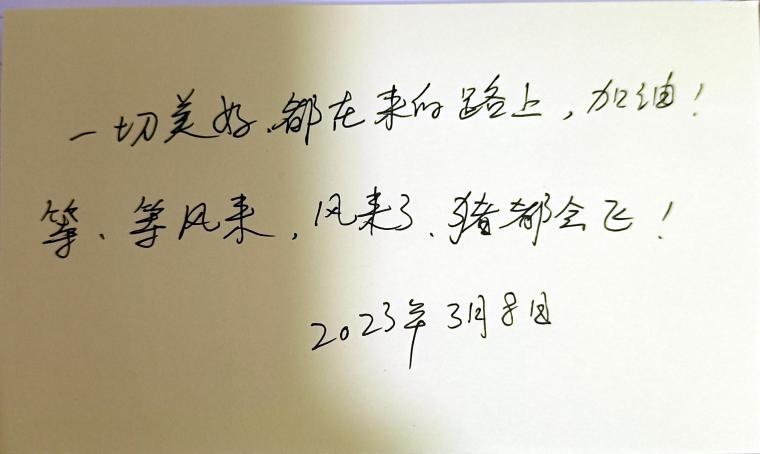 一切美好、都在来的路上，加油！
等、等风来，风来了、猪都会飞！
2023年3月8日